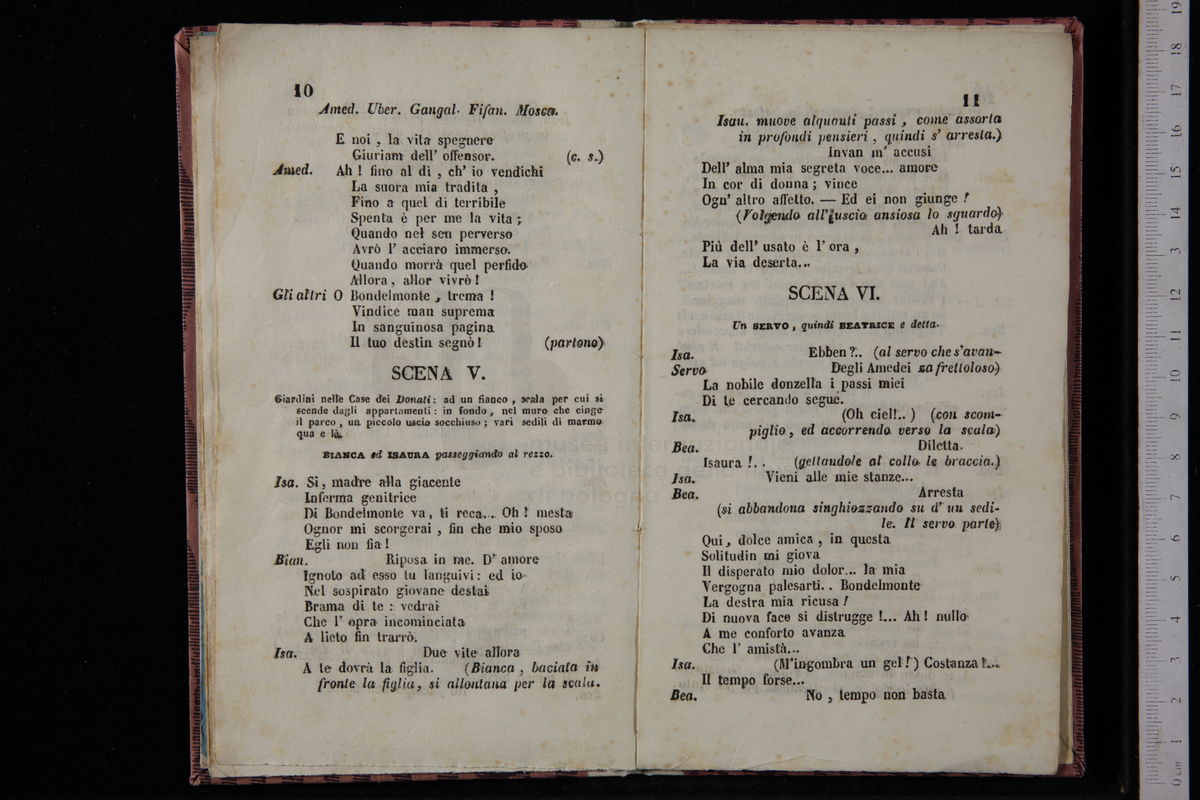 10
Amed. Uber. Gangal. Fifan. Mosca.
E noi , la vita spegnere
Giuriam dell' offensor. (c. s.)
Amed. Ah ! fino al dì , ch' io vendichi
La suora mia tradita ,
Fino a quel dì terribile
Spenta è per me la vita ;
Quando nel sen perverso
Avrò l' acciaro immerso.
Quando morrà quel perfido
Allora , allor vivrò !
Gli altri O Bondelmonte , trema !
Vindice man suprema
In sanguinosa pagina
Il tuo destin segnò ! (partono)
SCENA V.
Giardini nelle Case dei Donati : ad un fianco , scala per cui si
scende dagli appartamenti : in fondo , nel muro che cinge
il parco , un piccolo uscio socchiuso ; vari sedili di marmo
qua e là.
BIANCA ed ISAURA passeggiando al rezzo.
Isa. Si, madre alla giacente
Inferma genitrice
Di Bondelmonte va, ti reca... Oh ! mesta
Ognor mi scorgerai , fin che mio sposo
Egli non fia !
Bian. Riposa in me. D' amore
Ignoto ad esso tu languivi : ed io
Nel sospirato giovane destai
Brama di te : vedrai
Che l' opra incominciata
A lieto fin trarrò.
Isa. Due vite allora
A te dovrà la figlia. (Bianca , baciata in
fronte la figlia, si allontana per la scala.
11
Isau. muove alquanti passi , come assorta
in profondi pensieri , quindi s' arresta.)
Invan m' accusi
Dell' alma mia segreta voce... amore
In cor di donna ; vince
Ogn' altro affetto. — Ed ei non giunge !
(Volgendo all'uscio ansiosa lo sguardo)
Ah ! tarda
Più dell' usato è l' ora ,
La via deserta...
SCENA VI.
Un SERVO , quindi BEATRICE e detta.
Isa. Ebben ?.. (al servo che s'avan-
Servo Degli Amedei za frettoloso)
La nobile donzella i passi miei
Di te cercando segue.
Isa. (Oh ciel!.. ) (con scom-
piglio, ed accorrendo verso la scala)
Bea. Diletta.
Isaura !. . (gettandole al collo le braccia.)
Isa. Vieni alle mie stanze...
Bea. Arresta
(si abbandona singhiozzando su d' un sedi-
le. Il servo parte)
Qui, dolce amica , in questa
Solitudin mi giova
Il disperato mio dolor... la mia
Vergogna palesarti. . Bondelmonte
La destra mia ricusa !
Di nuova face si distrugge !... Ah ! nullo
A me conforto avanza
Che l' amistà...
Isa. (M'ingombra un gel !) Costanza !...
Il tempo forse...
Bea. No , tempo non basta